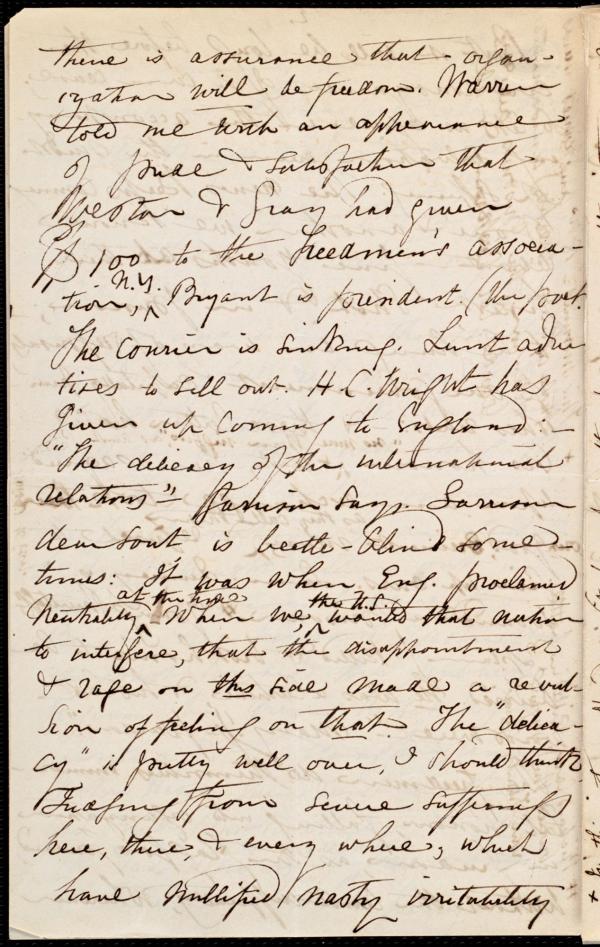 there is assurance that organ-
ization will be freedom. Warren
told me with an appearance
of pride & satisfaction that
Weston & Gray had given
$100 to the Freedmen's associa-
tion, N.Y. Bryant is president. (the poet.
The Courier is sinking. Lunt adver
tises to sell out. H. C. Wright has
given up coming to England:—
"The delicacy of the international
relations"— Garrison says. Garrison
dear soul, is beetle-blind some-
times: It was when Eng. proclaimed
Neutrality, at the time when we, the U.S. wanted that nation
to interfere, that the disappointment
& rage on this side made a revul-
sion of feeling on that. The "delica-
cy" is pretty well over, I should think,
Judging from severe sufferings
here, there, & every where, which
have nullified nasty irritability